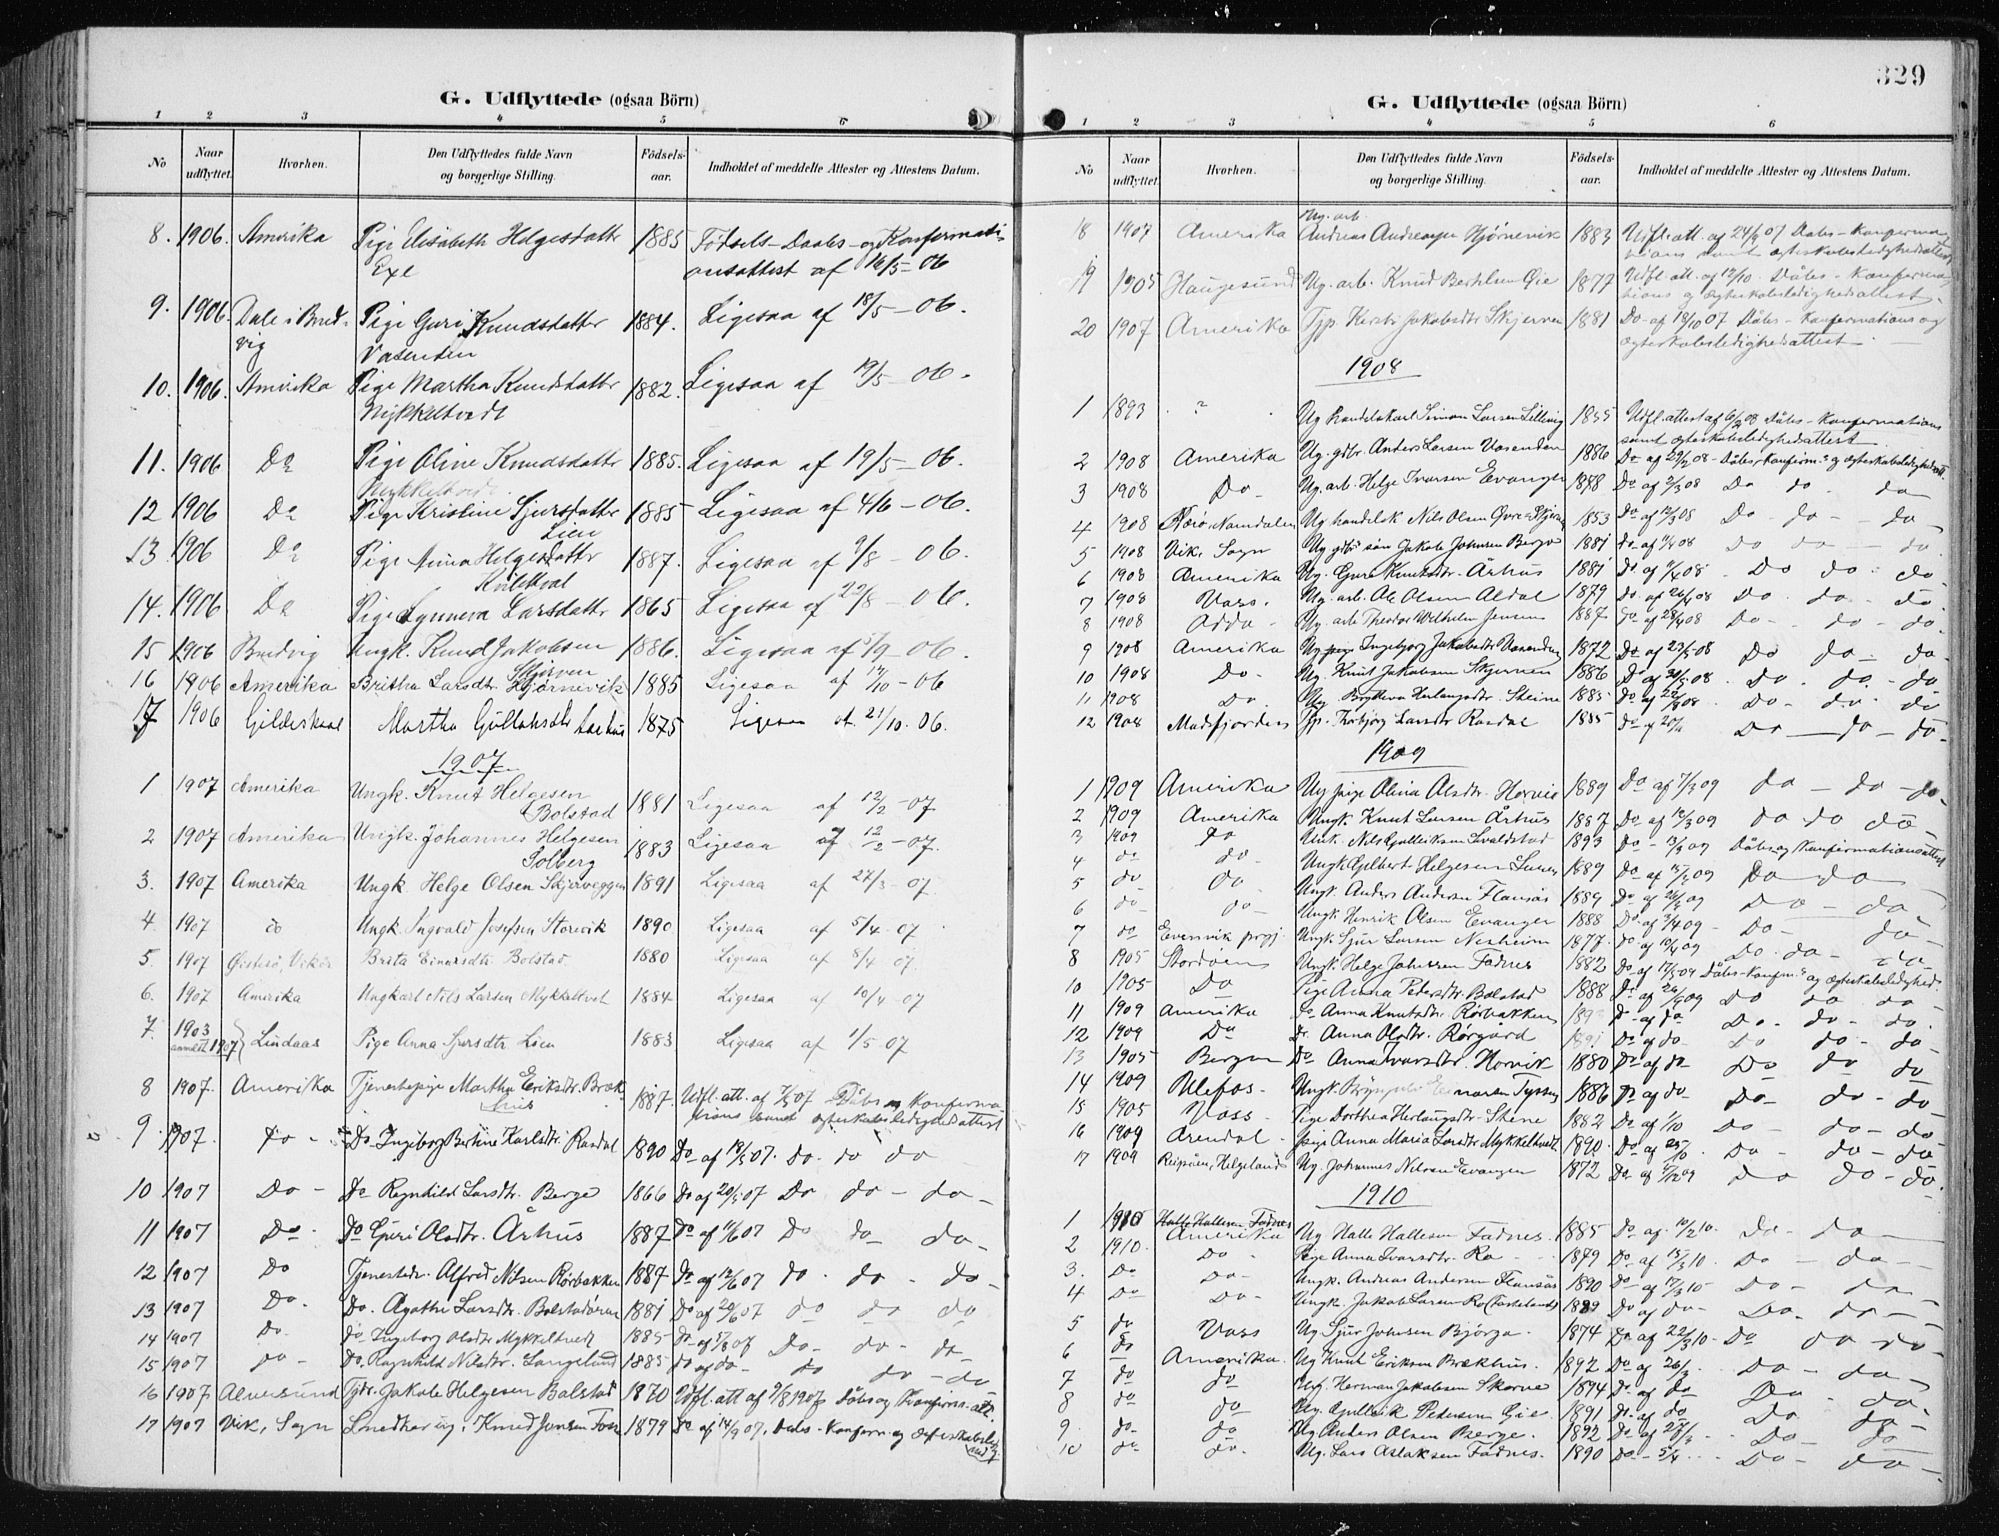 329
G. Udflyttede (ogsaa Börn)
1 2 3 4 5 6
No Naar udflyttet. Hvorhen. Den Udflyttedes fulde Navn og borgerlige Stilling. Födsels-aar. Indholdet af meddelte Attester og Attestens Datum.
8. 1906. Amerika Pige Elisabeth Helgesdatter 1885 Fødsels- Daabs- og Konfirmati-
Exe onsattest af 16/5-06
9. 1906. Dale i Bred- Pige Guri Knudsdatter 1884. Ligesaa af 18/5-06.
vig Vasenden
10. 1906. Amerika Pige Martha Knudsdatter 1882. Ligesaa af 19/5-06.
Mykkeltvedt
11. 1906 Do Pige Oline Knudsdatter 1885. Ligesaa af 19/5-06.
Mykkeltvedt
12 1906 Do Pige Kristine Sjursdatter 1885 Ligesaa af 4/6-06.
Lien
13. 1906 Do Pige Anna Helgesdatter 1887. Ligesaa af 9/8-06.
14. 1906 Do Pige Synneva Larsdatter 1865 Ligesaa af 22/8-06.
15 1906 Bredvig Ungk. Knud Jakobsen 1886. Ligesaa af 5/9-06.
Skjerven
16 1906 Amerika Britha Larsdtr Hjørnevik 1885 Ligesaa af 12/10-06
17 1906 Gildeskaal Martha Gullaksdtr Aarhus 1875 Ligesaa af 21/10.06.
1907
1 1907 Amerika Ungk. Knut Helgesen 1881 Ligesaa af 12/2-07
Bolstad
2 1907 Amerika Ungk. Johannes Helgesen 1883 Ligesaa af 12/2-07.
Solberg
3. 1907 Amerika Ungk. Helge Olsen Skjerveggen 1891 Ligesaa af 22/3-07.
4. 1907 do Ungk. Ingvald Josefsen Storevik 1890 Ligesaa af 5/4-07.
5. 1907 Østesø, Vikør Brita Einarsdtr Bolstad 1880 Ligesaa af 8/4 07.
6. 1907 Amerika Ungkarl Nils Larsen Mykkeltvet 1884 Ligesaa af 10/4-07
7. 1903 anmeldt 1907 Lindaas Pige Anna Sjursdtr Lien 1883 Ligesaa af 1/5-07
8 1907. Amerika Tjenestepige Martha Eriksdtr. Bræk- 1887. Udfl. att. af 7/5 07 Dåbs og Konfirma-
hus tions samt ægteskabsledighedsattest
9. 1907. Do - Do. Ingeborg Bertine Karlsdtr. Rasdal 1890 Do af 18/5 07. Do. do do
10 1907 Do - Do Ragnhild Larsdtr. Berge 1866 Do af 20/5 07 Do do - do -
11 1907 Do - Do Guri Olsdtr. Århus 1887 Do af 11/6 07 Do do - do -
12 1907 Do Tjenestedr. Alfred Nilsen Rørbakken 1887 Do af 12/6 07 do - do - do -
13 1907 Do. Do. Agathe Larsdtr. Bolstadøren 1881 Do af 20/6 07 do do do
14 1907 Do. Do Ingeborg Olsdtr Mykkeltvedt 1885 Do af 07 Do - do - do -
15 1907 do - Do. Ragnhild Nilsdtr. Langeland 1885 do af do - do do - do
16 1907 Alversund Tydr. Jakob Helgesen Bolstad 1870 Udfl. att af 9/8 1907 Dåbs og Konfirms-att.
17 1907 Vik, Sogn Smedkar ug. Knud Jonsen Fosse 1879 Do af 14/9 07. Dåbs- Konfirm- og ægteskabsledighed
G. Udflyttede (ogsaa Börn)
1 2 3 4 5 6
No Naar udflyttet. Hvorhen. Den Udflyttedes fulde Navn og borgerlige Stilling. Födsels-aar. Indholdet af meddelte Attester og Attestens Datum.
18 1907 Amerika Ug. arb. Andreas Andreasen Hjørnevik 1883 Udfl. att. af 24/9 07 Dåbs- Konfirma-
tions samt ægteskabsledighedsattest
19 1905 Haugesund Ug. arb. Knud Berthelsen Øie 1877 Udfl. att. af 12/10. Dåbs- Konfirma-
tions og ægteskabsledighedsattest.
20 1907 Amerika Tjp. Kirsti Jakobsdtr Skjerven 1881 Do af 18/10 07 Dåbs- Konfirmations og
ægteskabsledighedsattest.
1908
1 1893 ? Ug handelskarl Simon Larsen Lilleng 1855 Udfl. attest af 6/2 08 Dåbs- Konfirmations
samt ægteskabsledighedsattest
2 1908 Amerika Ug. gdbr. Anders Larsen Vasenden 1886 Do af 29/2 08 - Dåbs, Konfirms og ægteskabsledighedsatt.
3 1908 Do - Ug. arb. Helge Ivarsen Evanger 1888 Do af 2/3 08 Do do - do
4 1908 Namdalen Ug handelsk Nils Olsen Øvre Skjerven 1853 Do af 12/3 08 Do - do - do -
5 1908 Vik, Sogn Ug gdbr søn Jakob Johnsen Berge 1881 Do af 1/4 08 Do do - do.
6 1908 Amerika Ug. Guro Knutsdtr. Århus 1881 Do af 9/4 08 Do do. do.
7 1908 Voss. Ug. arb. Ole Olsen Aldal 1879 Do. af 26/4 08 Do. do. - do.
8 1908 Odda - Ug. arb Theodor Wilhelm Jensen 1887 Do af 28/4 08 Do - do - do -
9 1908 Amerika Ug pige Ingebjørg Jakobsdtr Vasenden 1872 Do af 23/5 08 Do do - do.
10 1908 Do - Ug. Knut Jakobsen Skjerven 1886 Do af 30/5 08 Do. do. - do
11 1908 Do Ug Brytteva Herlaugsdtr. Steine 1885 Do af 22/8 08 Do - do - do
12 1908 Masfjorden Tjp. Torbjørg Larsdtr Rasdal 1885 Do af 20/11 Do - do - do -
1909
1 1909 Amerika Ug pige Olina Olsdtr. Horvei 1889 Do af 7/3 09 do - do - do.
2 1909 Amerika Ungk Knut Larsen Århus 1887 Do af 10/3 09 do do do -
3 1909 Do Unk. Nils Gulleiksen Evaldstad 1893 Do - 13/3 09 Dåbs og Konfirmationsattest
4 do do - Ungk Gjilbert Helgesen 1889 Do af 15/3 09 Do do -
5 do Do Ungk Anders Andersen Flansås 1889 Do af 26/3 09 Do - do
6 do - do - Ungk Henrik Olsen Evanger 1888 Do af 3/4 09 - Do - do -
7 do Evenvik prgj. Ungk Sjur Larsen Nesheim 1877. do af 13/4 09 Do do - do
8 1905 Stordøen Ungk. Helge Johnsen Fadnes 1882 Do af 17/5 09 Dåbs- Konfirms og ægteskabsledighed
10 1905 Do Pige Anna Pedersdtr Bolstad 1888 Do af 26/5 09 Do do do -
11 1909 Amerika Do Anna Knutsdtr. Rørbakken Do af do Do - do - do.
12 1909 Do Do. Anna Olsdtr. Rørgård 1891 Do af do - Do do - do -
13 1905 Bergen Do Anna Ivarsdtr. Horvik 1880 Do af do - Do do do
14 1909 Ulefos - Ungk. Brynjulv Einarsen Tyssen 1886 Do af do Do - do - do -
15 1905 Voss. Pige Dorthea Herlaugsdtr. Steine 1882 Do af 1/10 Do - do - do -
16 1909 Arendal - pige Anna Maria Larsdtr Mykkeltvedt 1890. Do af 29/10 Do - do - do
17 1909 Helgeland Ug. Johannes Nilsen Evanger 1872 Do af 9/12 09 Do do - do -
1910
1 1910 Halle Hallesen Fadnes Amerika Ug Halle Hallesen Fadnes 1885 Do af. 10/2 10. Do - do
2 1910. Do - Pige Anna Ivarsdtr. Ro 1879 Do. af 15/3 10. Do - do -
3. Do Do - Ungk. Andreas Andersen Flansås 1890 Do af 17/3 10 - Do - do -
4 Do - Do - Ungk. Jakob Larsen Ro (Fosseland) 1889 Do af do - Do. do -
5 do Voss Ug Sjur Johnsen Bjørge. 1874 Do af 22/3 10. Do do do -
6 do Amerika. Ug Knut Eriksen Brækhus. 1892 Do af 26/3 Do - do -
7 do do Unf. Herman Jakobsen Skorve 1894 Do af do Do - do.
8 do do Ug. Gulleik Pedersen Gjie 1891 Do af do Do do -
9. do - do Ug Anders Olsen Berge. 1892 Do af 28/3 Do - do
10 do do. Ug. Lars Aslaksen Fadnes. 1890 Do - 5/4 Do - do -